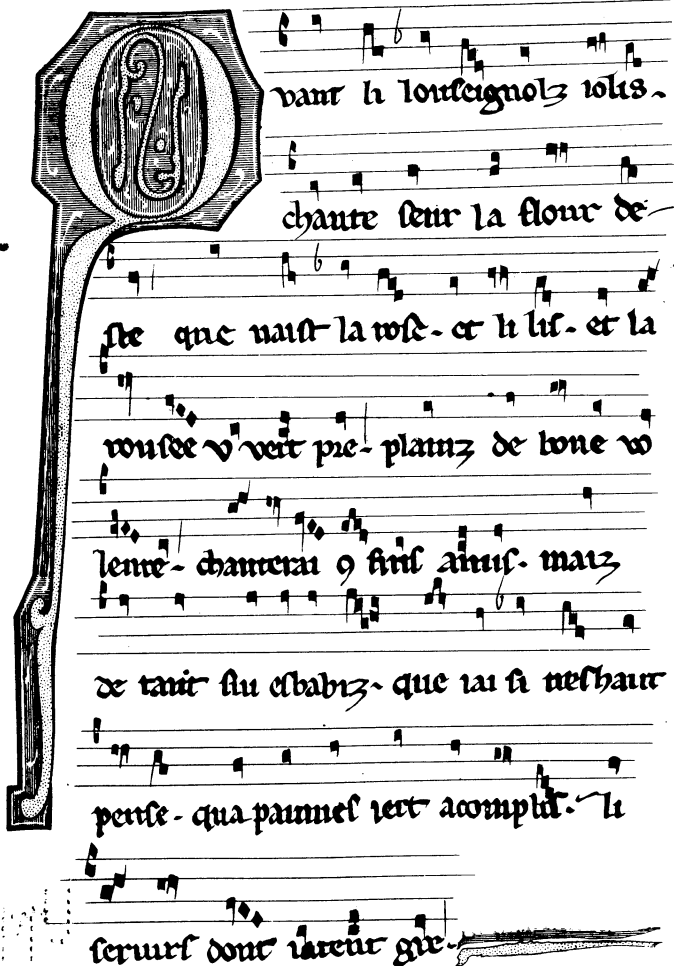 Quant li louseignolz iolis.
chante seur la flour de
ste que naist la rose. et li lis. et la
rousee v vert pre. plainz de bone vo
lente. chanterai 9 fins amis. maiz
de tant sui esbahiz. que iai si treshaut
pense. qua painnes iert acomplis. li
seruirs dont iatent gre.